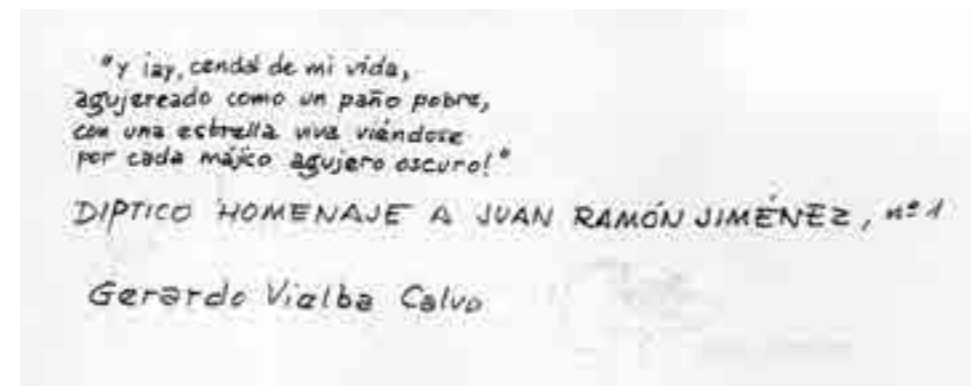 "Y ¡ay, cendal de mi vida,
agujereado como un paño pobre,
con una estrella viva viéndose
por cada májico agujero oscuro!"
DIPTICO HOMENAJE A JUAN RAMÓN JIMÉNEZ, nº 1
Gerardo Vialba Calvo